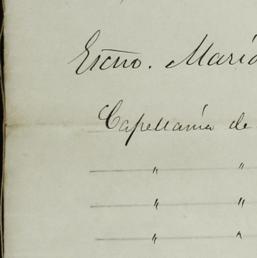 Escno. María
Capellanía de
" "
" "
" "